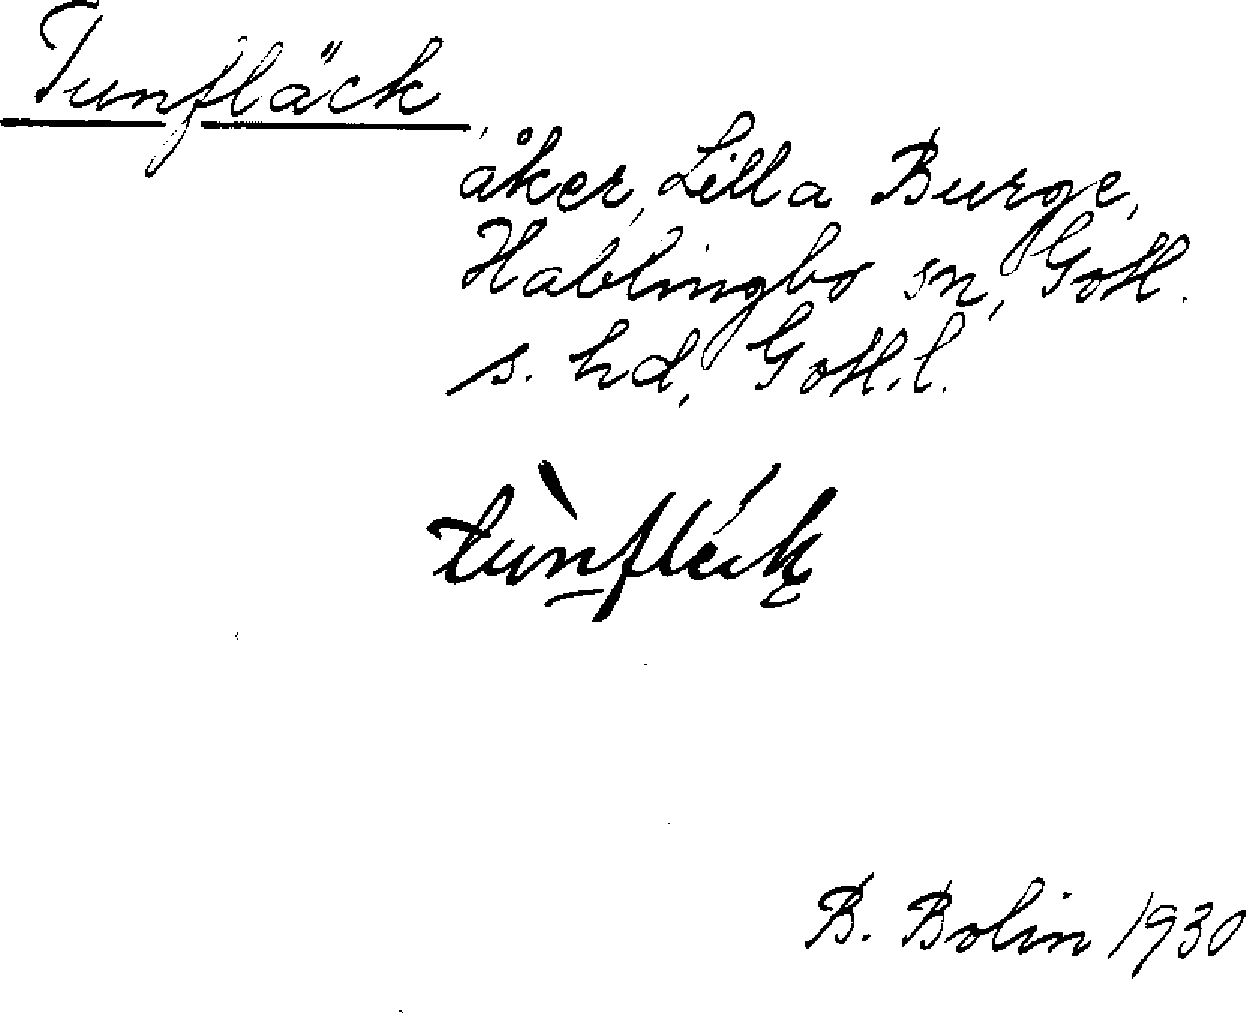 Tunfläck,
åker, Lilla Burge,
Hablingbo sn, Gotl.
s. hd, Gotl. l.
tùnflék
B. Bolin 1930